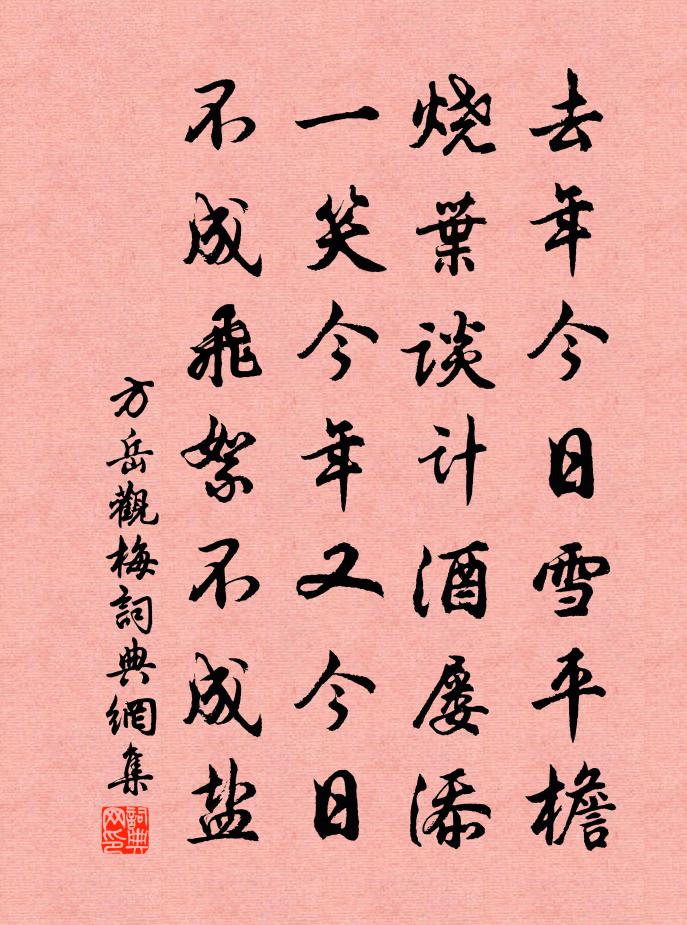 去年今日雪平檐
烧葉谈计酒屡添
一笑今年又今日
不成飛絮不成盐
方岳觀梅詞典網集
詞典网印